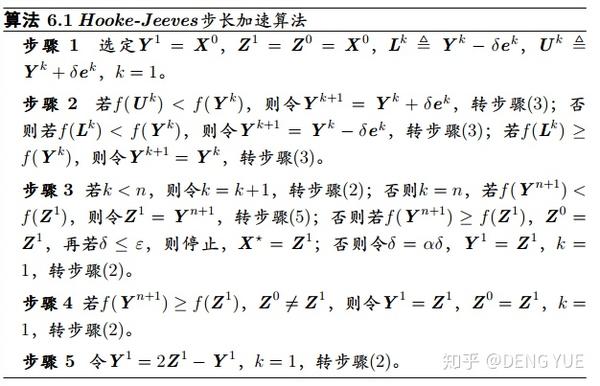 算法 6.1 Hooke-Jeeves步长加速算法
步骤 1 选定Y¹ = X⁰, Z¹ = Z⁰ = X⁰, Lᵏ ≜ Yᵏ − δeᵏ, Uᵏ ≜
Yᵏ + δeᵏ, k = 1。
步骤 2 若f(Uᵏ) < f(Yᵏ), 则令Yᵏ⁺¹ = Yᵏ + δeᵏ, 转步骤(3); 否
则若f(Lᵏ) < f(Yᵏ), 则令Yᵏ⁺¹ = Yᵏ − δeᵏ, 转步骤(3); 若f(Lᵏ) ≥
f(Yᵏ), 则令Yᵏ⁺¹ = Yᵏ, 转步骤(3)。
步骤 3 若k < n, 则令k = k+1, 转步骤(2); 否则k = n, 若f(Yⁿ⁺¹) <
f(Z¹), 则令Z¹ = Yⁿ⁺¹, 转步骤(5); 否则若f(Yⁿ⁺¹) ≥ f(Z¹), Z⁰ =
Z¹, 再若δ ≤ ε, 则停止, X⋆ = Z¹; 否则令δ = αδ, Y¹ = Z¹, k =
1, 转步骤(2)。
步骤4 若f(Yⁿ⁺¹) ≥ f(Z¹), Z⁰ ≠ Z¹, 则令Y¹ = Z¹, Z⁰ = Z¹, k =
1, 转步骤(2)。
步骤 5 令Y¹ = 2Z¹ − Y¹, k = 1, 转步骤(2)。
知乎 @DENG YUE